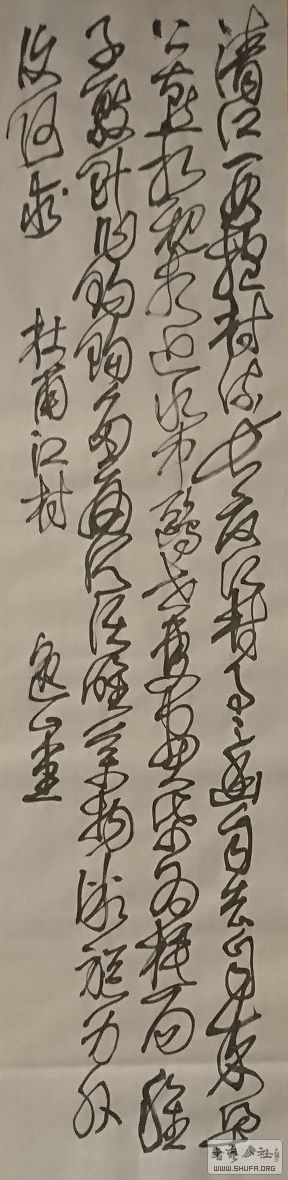 清江一曲抱村流長夏江村事事幽自去自來梁
上燕相親相近水中鷗老妻畫紙為棋局稚
子敲針作釣鉤多病所須唯藥物微軀此外
更何求 杜甫江村
书艺公社
WWW.SHUFA.ORG